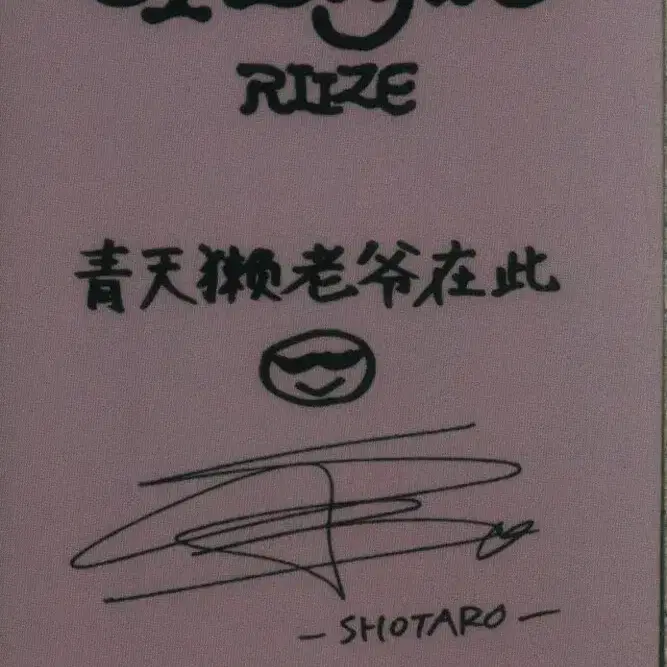 RIIZE
青天獭老爷在此
- SHOTARO -